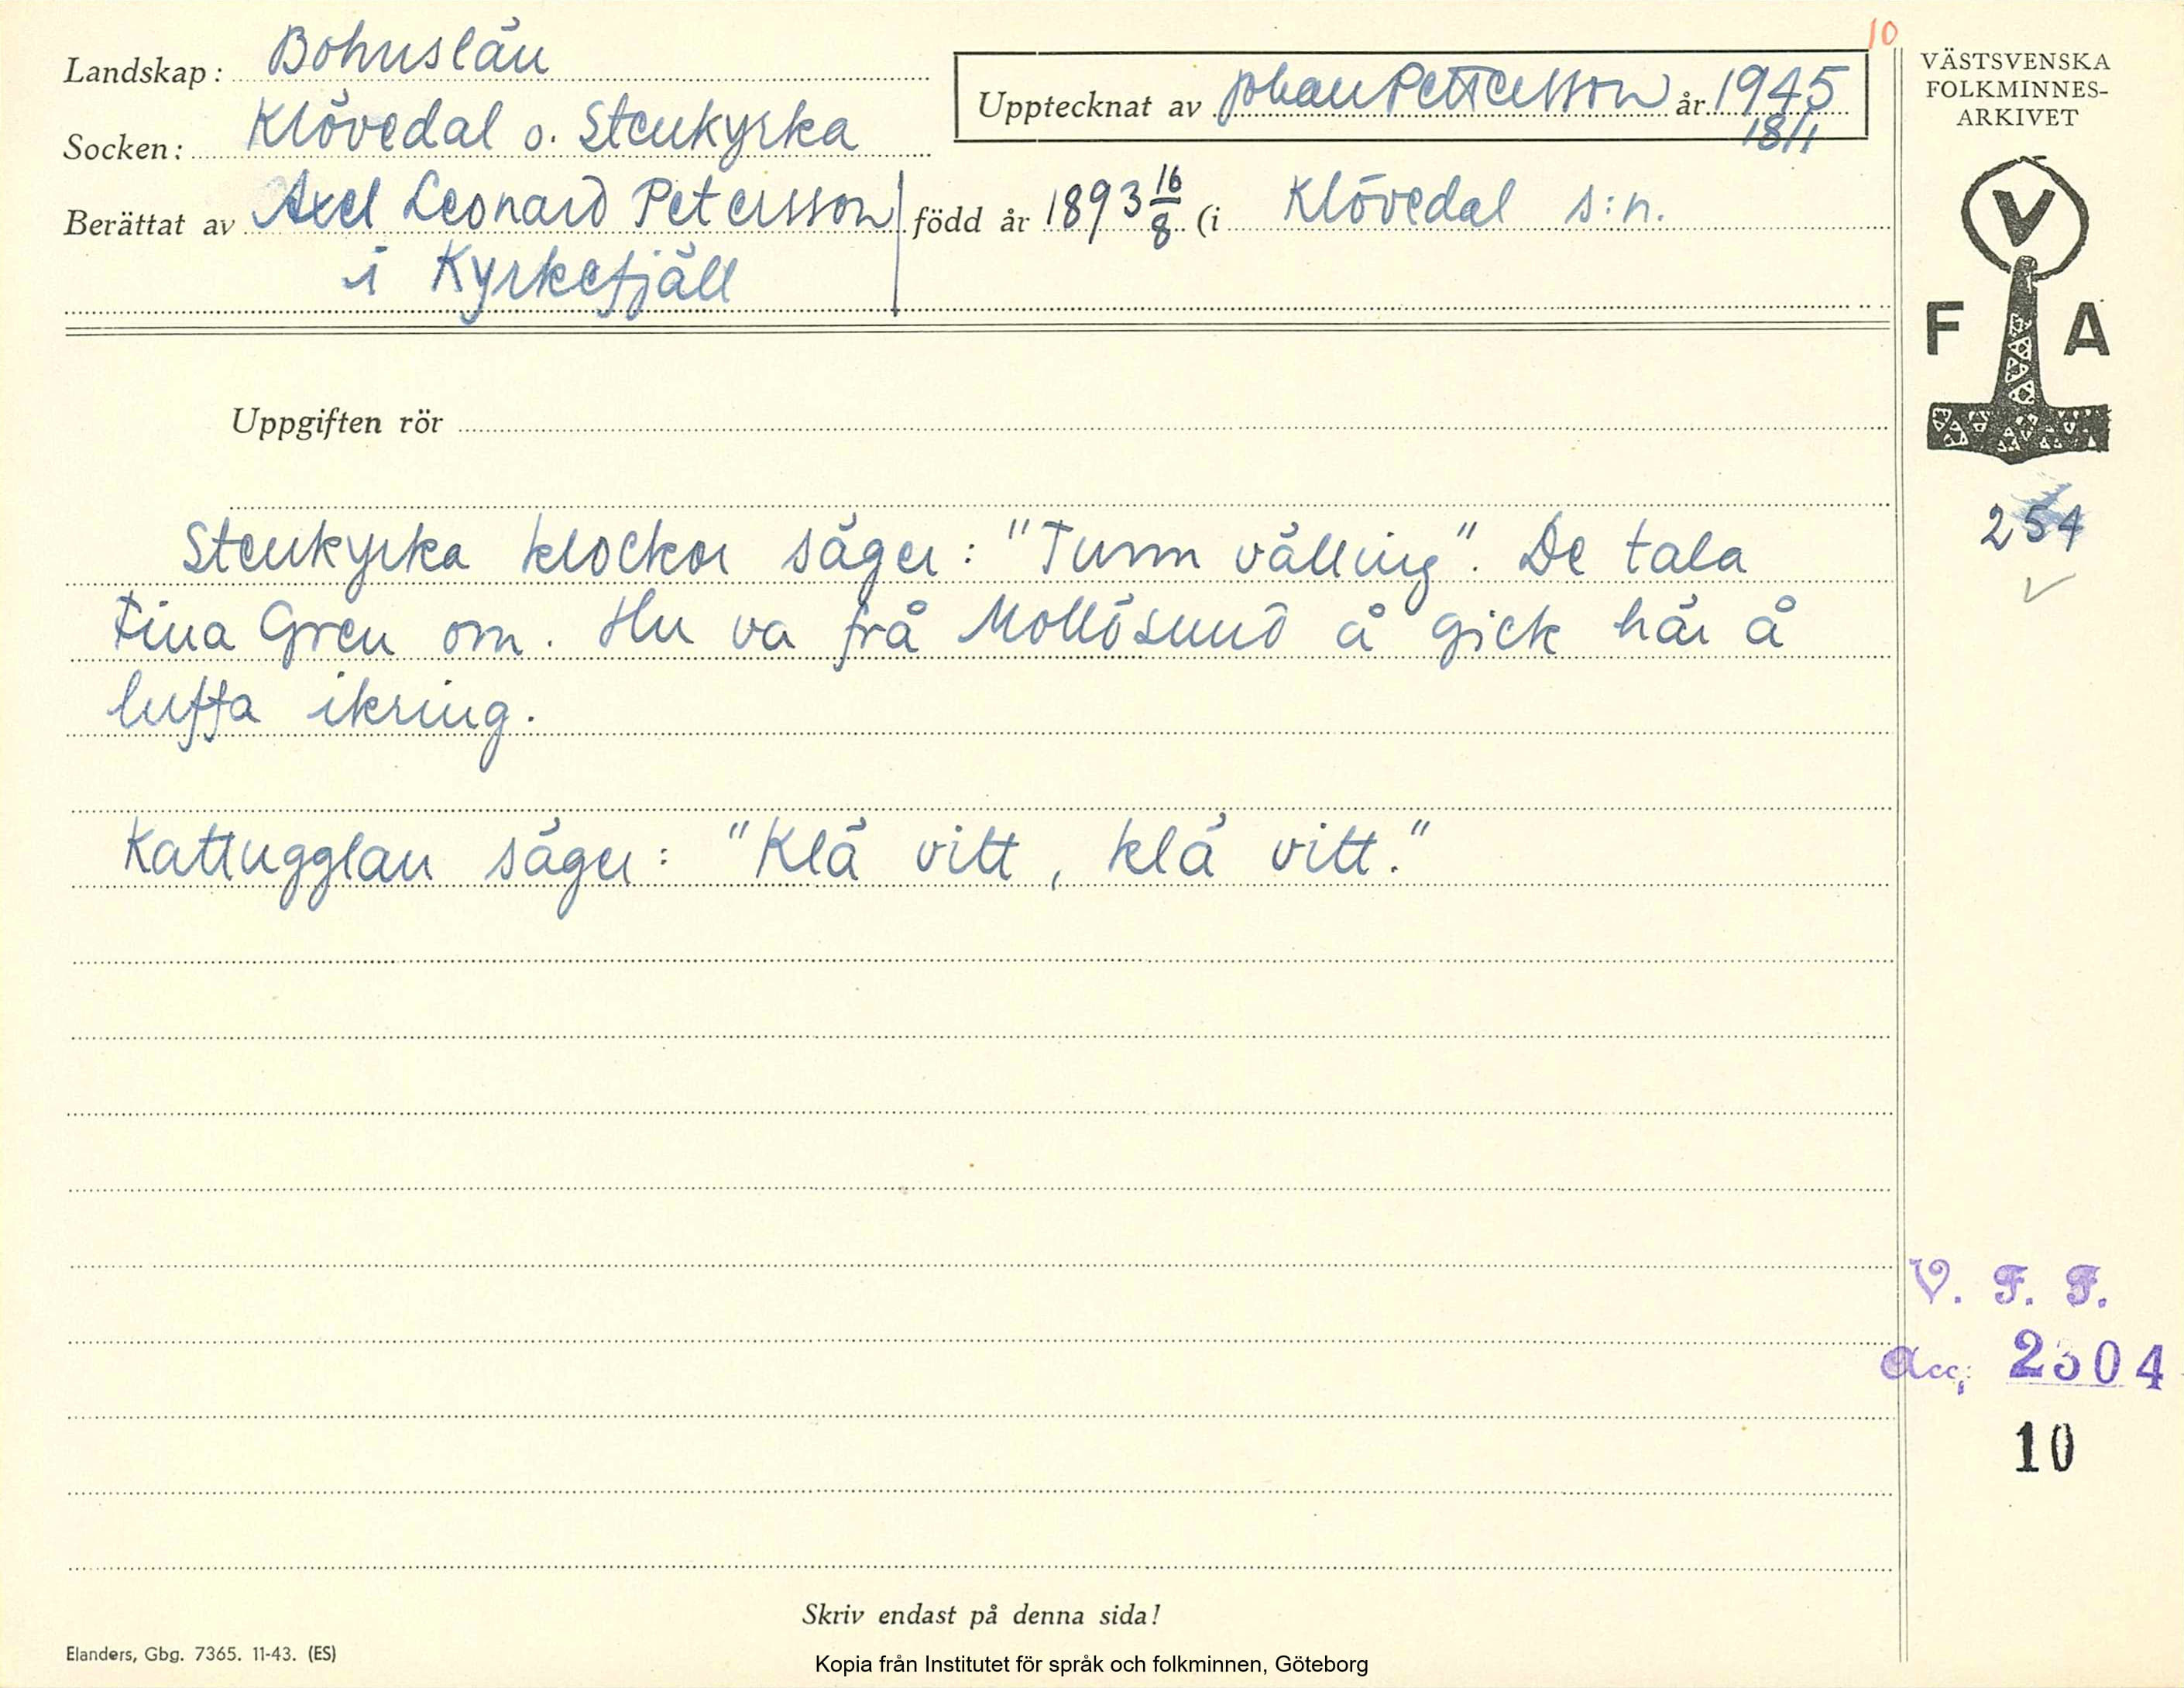 10
Landskap: Bohuslän
Socken: Klövedal o. Stenkyrka
Upptecknat av Johan Pettersson år 1945
18/1
Berättat av Axel Leonard Petersson född år 1893 16/8 (i Klövedal s:n.
i Kyrkefjäll
VÄSTSVENSKA
FOLKMINNES-
ARKIVET
V
F A
Uppgiften rör
254
Stenkyrka klockor säger: "Tunn välling". De tala
Fina Gren om. Hu va frå Mollösund å gick här å
luffa ikring.
Kattugglan säger: "Klä vitt, klä vitt."
V. F. F.
Acc. 2304
10
Skriv endast på denna sida!
Elanders, Gbg. 7365. 11-43. (ES)
Kopia från Institutet för språk och folkminnen, Göteborg